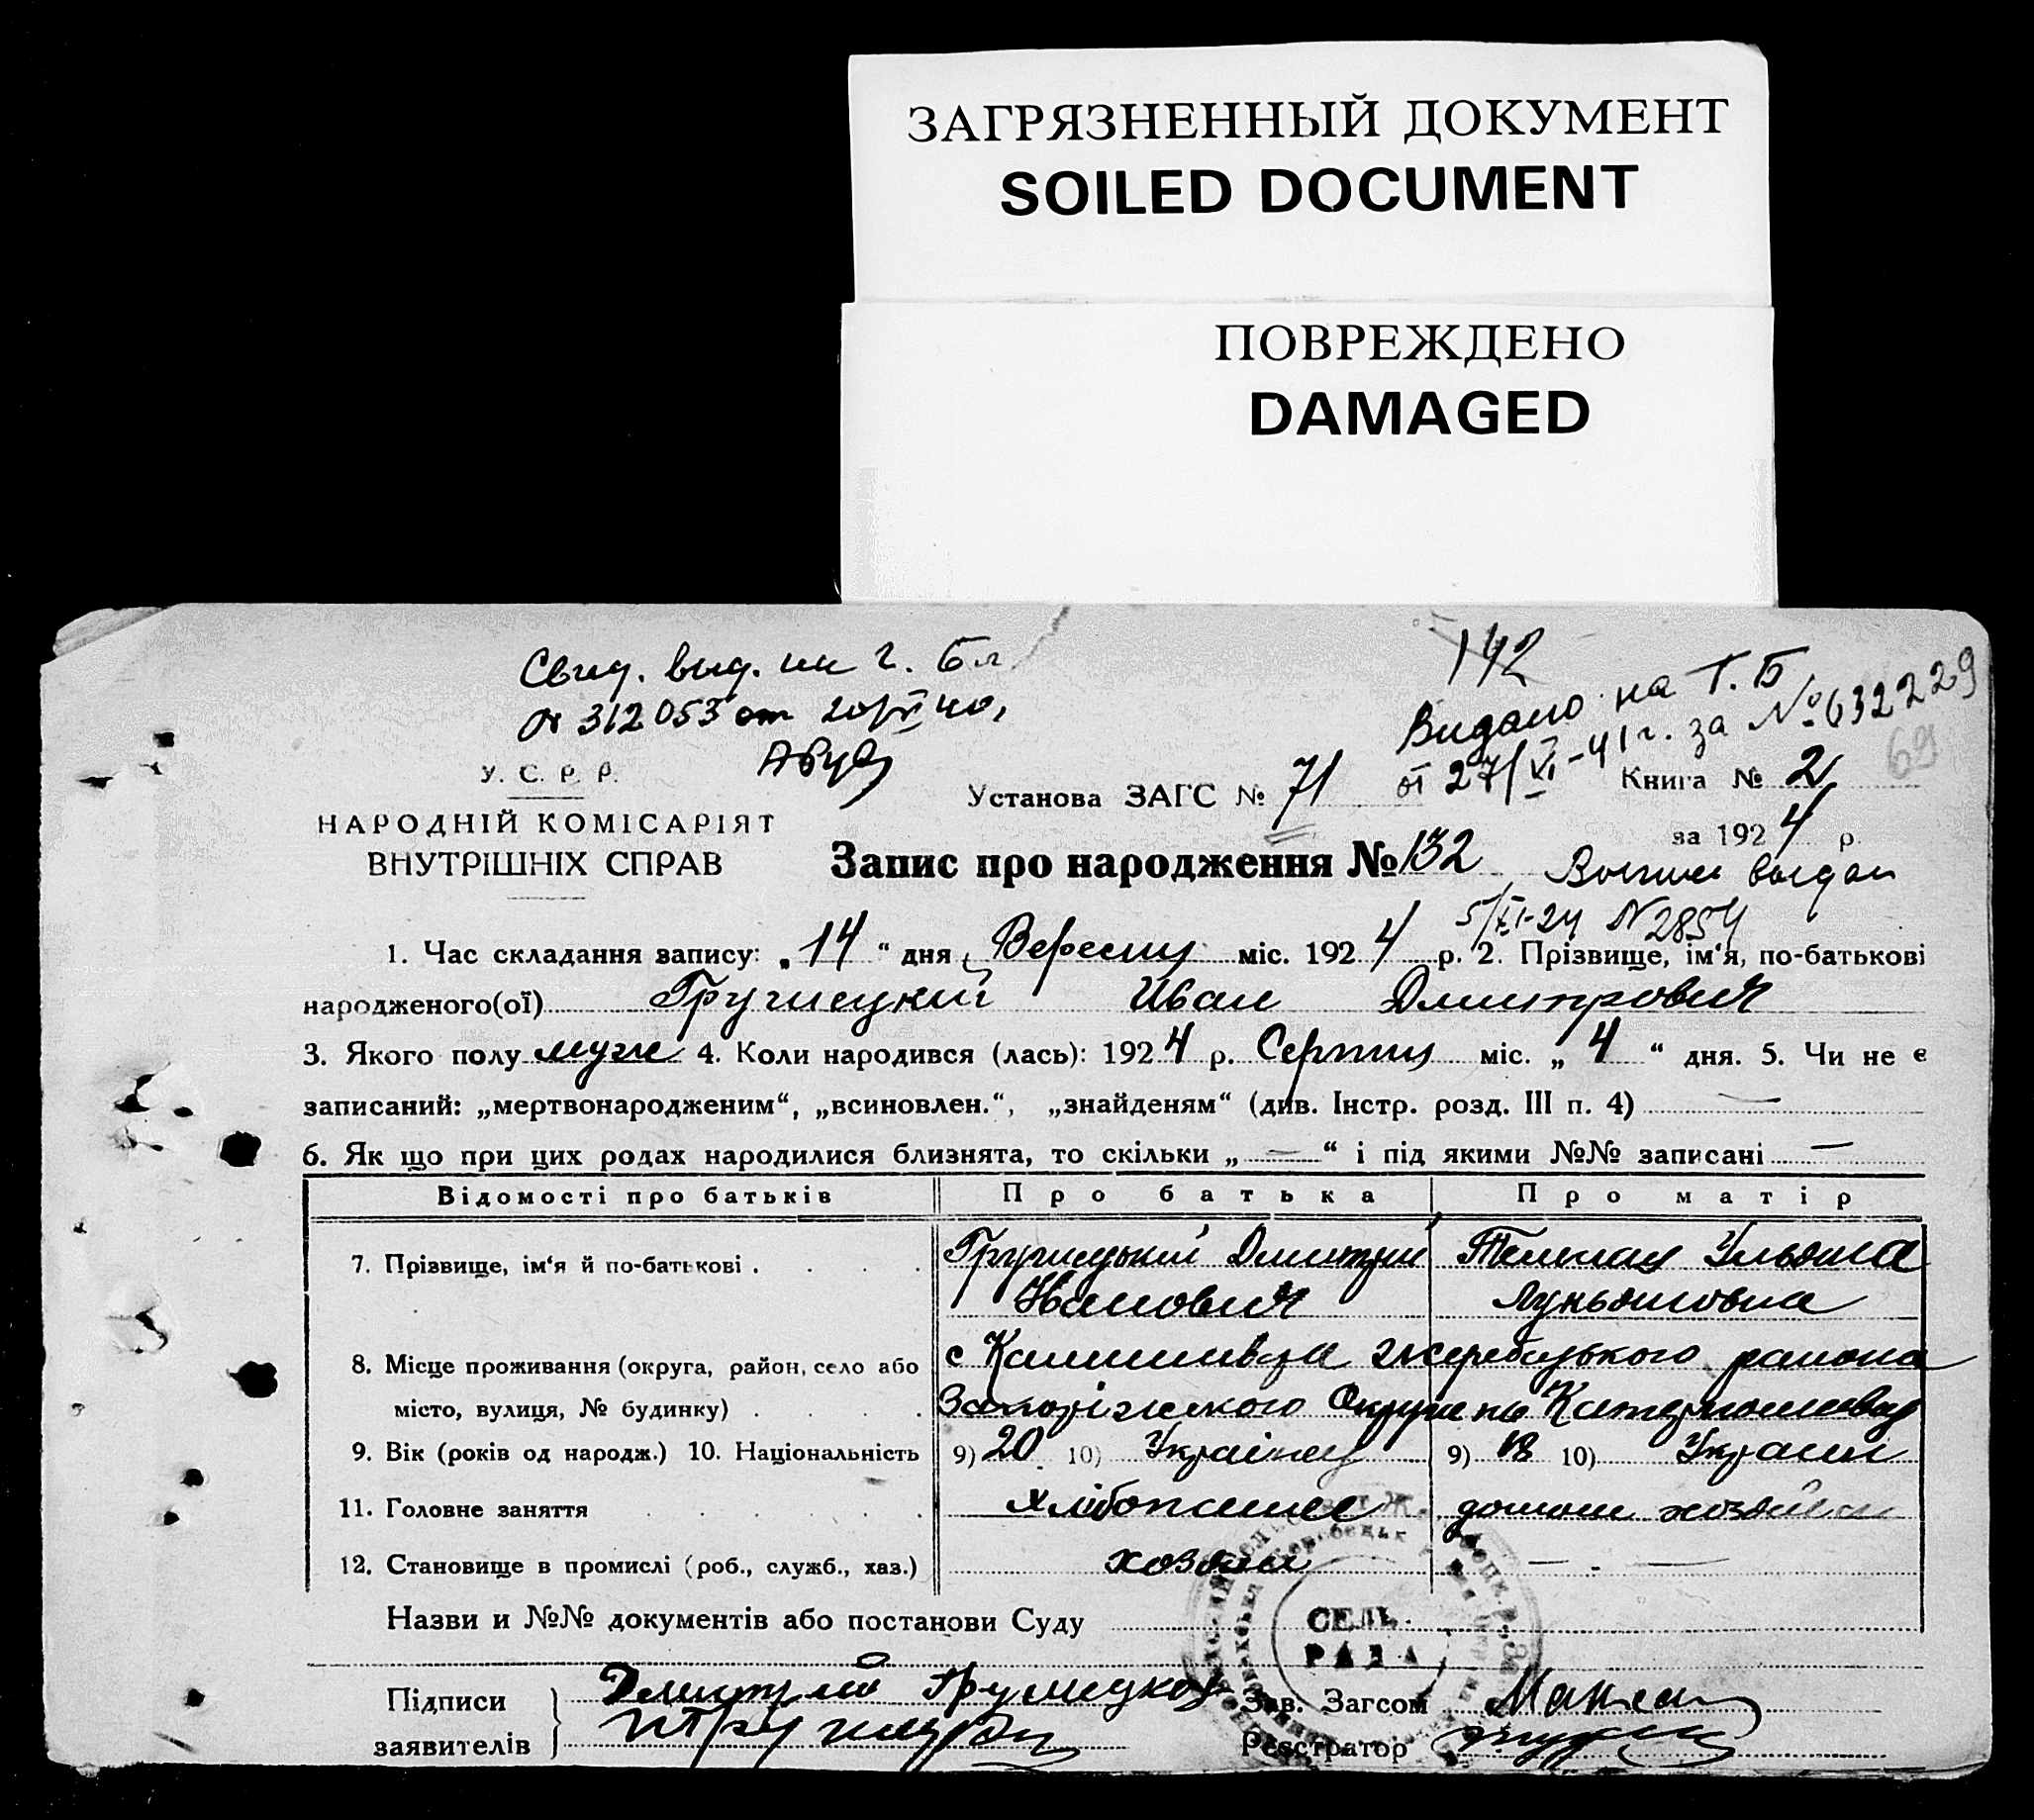 ЗАГРЯЗНЕННЫЙ ДОКУМЕНТ
SOILED DOCUMENT
ПОВРЕЖДЕНО
DAMAGED
142
Свид. выд.
№ 312053 от 20/VI 40,
Видано на Г.Б
от 27/VI-41 г. за №632229
69
У. С. Р. Р.
НАРОДНІЙ КОМІСАРІЯТ
ВНУТРІШНІХ СПРАВ
Установа ЗАГС № 71
Книга № 2
за 1924 р.
Запис про народження № 132
5/XI-24 N2854
1. Час складання запису: „14“ дня Вересня міс. 1924 р. 2. Прізвище, ім‘я, по-батькові
народженого(ої) Иван Дмитрович
3. Якого полу муж 4. Коли народився (лась): 1924 р. Серпня міс. „4“ дня. 5. Чи не є
записаний: „мертвонародженим“, „всиновлен.“, „знайденям“ (див. Інстр. розд. III п. 4) —
6. Як що при цих родах народилися близнята, то скільки „—“ і під якими №№ записані —
Відомості про батьків Про батька Про матір
7. Прізвище, ім‘я й по-батькові Дмитрий Ульяна
Иванович Лукьяновна
8. Місце проживання (округа, район, село або с жеребецького района
місто, вулиця, № будинку) Запоріжського Округи
9. Вік (років од народж.) 10. Національність 9) 20 10) Українец 9) 18 10)
11. Головне заняття
12. Становище в промислі (роб., служб., хаз.) хозяин — . —
Назви и №№ документів або постанови Суду
СЕЛЬ
РАДА
Підписи Дмитрий Зав. Загсом
заявителів Реєстратор